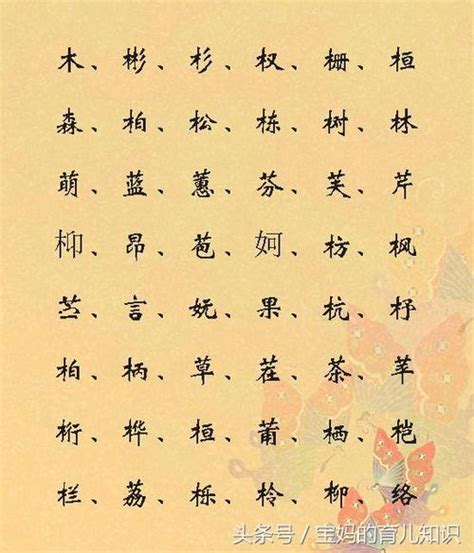 木、彬、杉、杈、栅、桓
森、柏、松、栋、树、林
萌、蓝、蕙、芬、芙、芹
枊、昂、苞、妸、枋、枫
苎、言、妩、果、杭、杼
柏、柄、草、茬、茶、苹
桁、桦、桓、莆、栖、桤
栏、荔、栎、柃、柳、络
头条号/宝妈的育儿知识